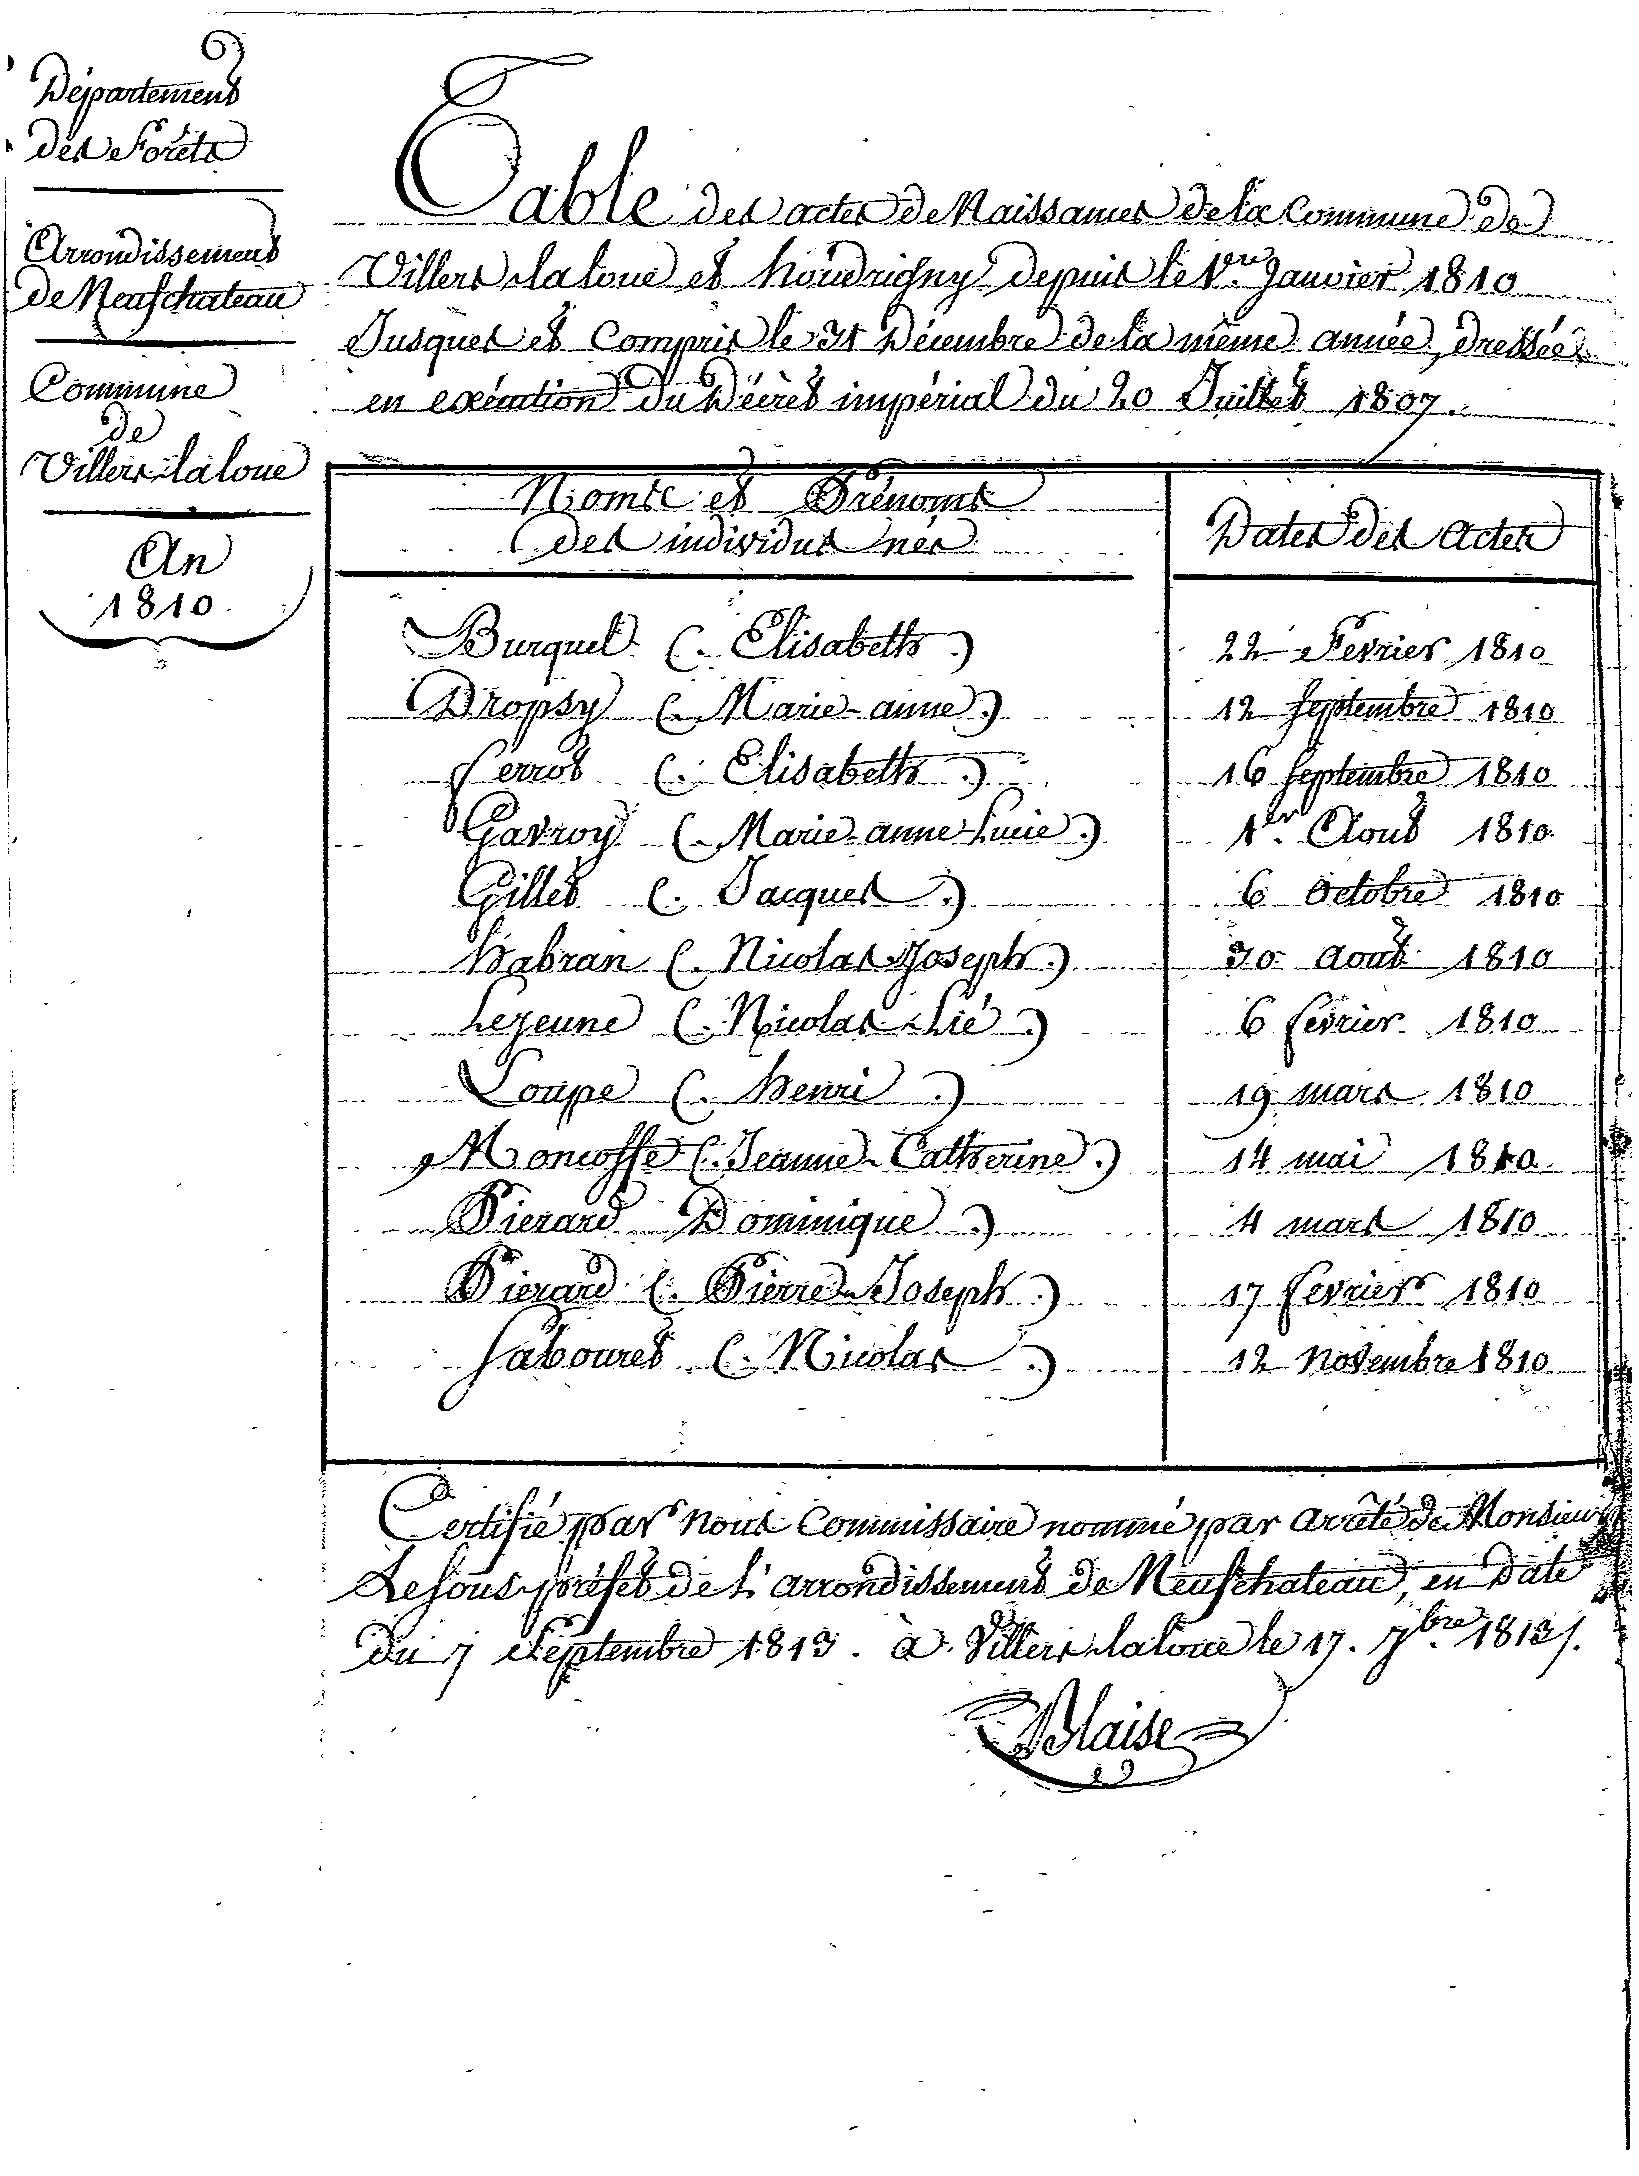 Département
des Forêts
Arrondissement
de Neufchateau
Commune
de
Villers-laloue
An
1810.
Table des actes de Naissances de la Commune de
Villers-laloue et houdrigny depuis le 1er. Janvier 1810
Jusques et Compris le 31 Décembre de la même année, dressée
en exécution du Décrèt impérial du 20 Juillet 1807.
Noms et Prénoms
des individus nés
Dates des actes
Burquel (. Elisabeth .) 22 Fevrier 1810
Dropsy (. Marie-anne .) 12 Septembre 1810
ferrot (. Elisabeth .) 16 Septembre 1810
Gavroy (. Marie-anne-Lucie .) 1er. Aout 1810
Gillet (. Jacques .) 6 Octobre 1810
habran (. Nicolas-Joseph .) 30 Aout 1810
Lejeune (. Nicolas-Lié .) 6 fevrier 1810
Loupe (. henri .) 19 mars 1810
Moncosse (. Jeanne-Catherine .) 14 mai 1810
Pierard Dominique .) 4 mars 1810
Pierard (. Pierre-Joseph .) 17 fevrier 1810
Sabouret (. Nicolas .) 12 Novembre 1810
Certifié par nous Commissaire nommé par arrêté de Monsieur
Le Sous-préfet de L'arrondissement de Neufchateau, en Date
du 7 Septembre 1813. à Villers-laloue le 17. 7bre. 1813/.
Blaise